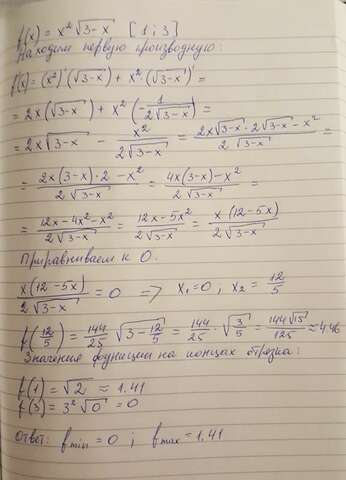 f(x) = x²√3-x  [1 ; 3]
Находим первую производную:
f'(x) = (x²)'(√3-x) + x²(√3-x)' =
= 2x(√3-x) + x²(- 1/(2√3-x)) =
= 2x√3-x - x²/(2√3-x) = (2x√3-x · 2√3-x - x²)/(2√3-x) =
= (2x(3-x)·2 - x²)/(2√3-x) = (4x(3-x) - x²)/(2√3-x) =
= (12x - 4x² - x²)/(2√3-x) = (12x - 5x²)/(2√3-x) = (x(12-5x))/(2√3-x)
Приравниваем к 0.
(x(12-5x))/(2√3-x) = 0 => x₁=0 ; x₂ = 12/5
f(12/5) = 144/25 √3-12/5 = 144/25 · √3/5 = 144√15/125 ≈ 4,46
Значения функции на концах отрезка:
f(1) = √2 ≈ 1,41
f(3) = 3²√0 = 0
Ответ: fmin = 0 ; fmax = 1,41